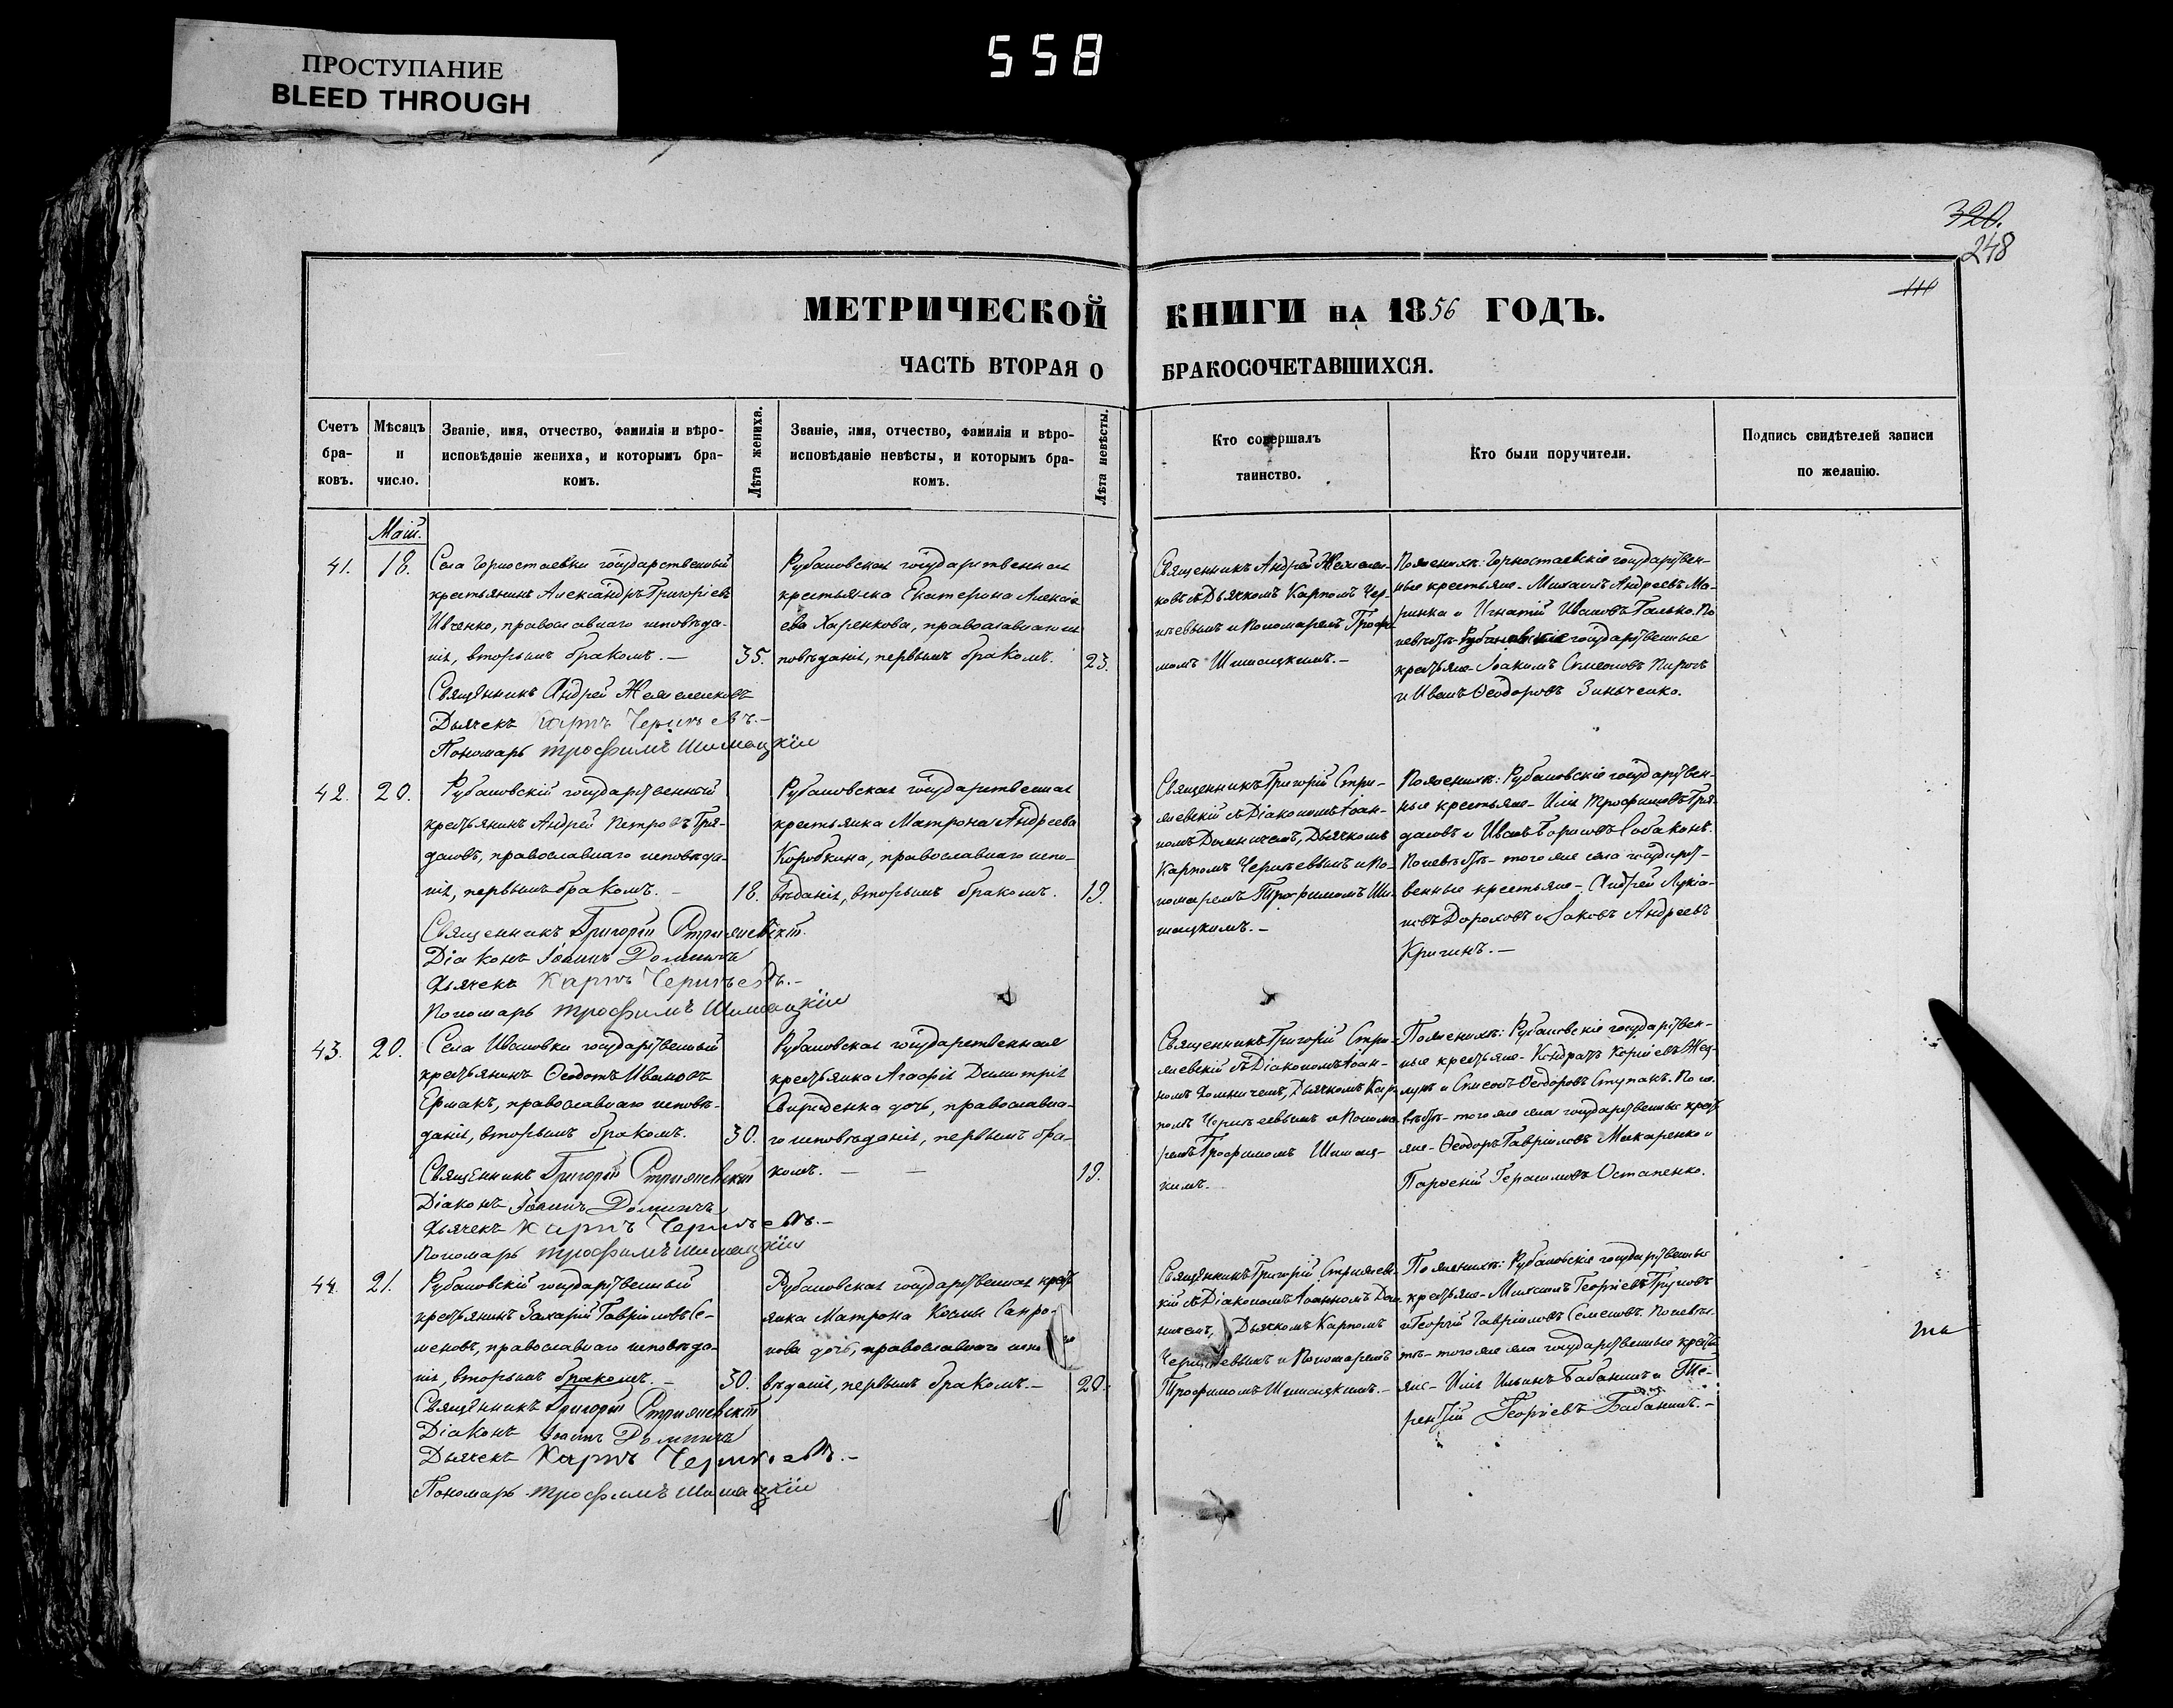 ПРОСТУПАНИЕ
BLEED THROUGH
558
320.
248
МЕТРИЧЕСКОЙ КНИГИ НА 1856 ГОДЪ.
ЧАСТЬ ВТОРАЯ О БРАКОСОЧЕТАВШИХСЯ.
Счетъ
бра-
ковъ.
Мѣсяцъ
и
число.
Званіе, имя, отчество, фамилія и вѣро-
исповѣданіе жениха, и которымъ бра-
комъ.
Лѣта жениха.
Званіе, имя, отчество, фамилія и вѣро-
исповѣданіе невѣсты, и которымъ бра-
комъ.
Лѣта невѣсты.
Кто совершалъ
таинство.
Кто были поручители.
Подпись свидѣтелей записи
по желанію.
Маій.
41.
18.
Села Горностаевки государственный
крестьянинъ Александръ Григоріевъ
Ивченко, православнаго исповѣда-
нія, вторымъ бракомъ. —
35.
Священникъ Андрей
Дьячекъ Карпъ
Пономарь Трофимъ
Рубановская государственная
крестьянка Екатерина Алексіе-
ева Харенкова, православнаго ис-
повѣданія, первымъ бракомъ.
23.
Священникъ Андрей
съ Дьячкомъ Карпомъ Чер-
и Пономаремъ Трофи-
момъ
По женихѣ: Горностаевскіе государствен-
ные крестьяне - Михаилъ Андреевъ Ма-
ринка и Игнатій Ивановъ Галько. По
невѣстѣ - Рубановскіе государственные
крестьяне - Іоакимъ Симеоновъ Пирогъ
и Иванъ Ѳеодоровъ Зинченко.
42.
20.
Рубановскій государственный
крестьянинъ Андрей Петровъ Гря-
дасовъ, православнаго исповѣда-
нія, первымъ бракомъ. -
18.
Священникъ Григорій
Діаконъ Іоаннъ
Дьячекъ Карпъ
Пономарь Трофимъ
Рубановская государственная
крестьянка Матрона Андреева
Коробкина, православнаго испо-
вѣданія, вторымъ бракомъ.
19.
Священникъ Григорій Стри-
жевскій съ Діакономъ Іоан-
номъ Дьячкомъ
Карпомъ и По-
номаремъ Трофимомъ Ши-
По женихѣ: Рубановскіе государствен-
ные крестьяне - Илія Трофимовъ Гря-
дасовъ и Иванъ Борисовъ
По невѣстѣ - того же села государст-
венные крестьяне - Андрей Лукіа-
новъ Дороховъ и Іаковъ Андреевъ
Кричинъ. —
43.
20.
Села Ивановки государственный
крестьянинъ Ѳеодотъ Ивановъ
Ермакъ, православнаго исповѣ-
данія, вторымъ бракомъ.
30.
Священникъ Григорій
Діаконъ Іоаннъ
Дьячекъ Карпъ
Пономарь Трофимъ
Рубановская государственная
крестьянка Агафія Димитрія
Свириденка дочь, православна-
го исповѣданія, первымъ бра-
комъ. —
19.
Священникъ Григорій Стри-
жевскій съ Діакономъ Іоан-
номъ Дьячкомъ Кар-
помъ и Понома-
ремъ Трофимомъ
По женихѣ: Рубановскіе государствен-
ные крестьяне - Кондратъ
и Симеонъ Ѳеодоровъ Ступакъ. По не-
вѣстѣ - того же села государственные крестья-
не - Ѳеодоръ Гавріиловъ Макаренко и
Парѳеній Герасимовъ Остапенко.
44.
21.
Рубановскій государственный
крестьянинъ Захарій Гавріиловъ Се-
меновъ, православнаго исповѣда-
нія, вторымъ бракомъ. —
30.
Священникъ Григорій
Діаконъ Іоаннъ
Дьячекъ Карпъ
Пономарь Трофимъ
Рубановская государственная кресть-
янка Матрона Космы Сапро-
нова дочь, православнаго испо-
вѣданія, первымъ бракомъ. —
20.
Священникъ Григорій Стрижев-
скій съ Діакономъ Іоанномъ
Дьячкомъ Карпомъ
и Пономаремъ
Трофимомъ
По женихѣ: Рубановскіе государственные
крестьяне - Георгіевъ
и Георгій Гавріиловъ Семеновъ. По невѣс-
тѣ - того же села государственные кресть-
яне - Илія Ильинъ Бабанинъ и Те-
рентій Георгіевъ Бабанинъ. —